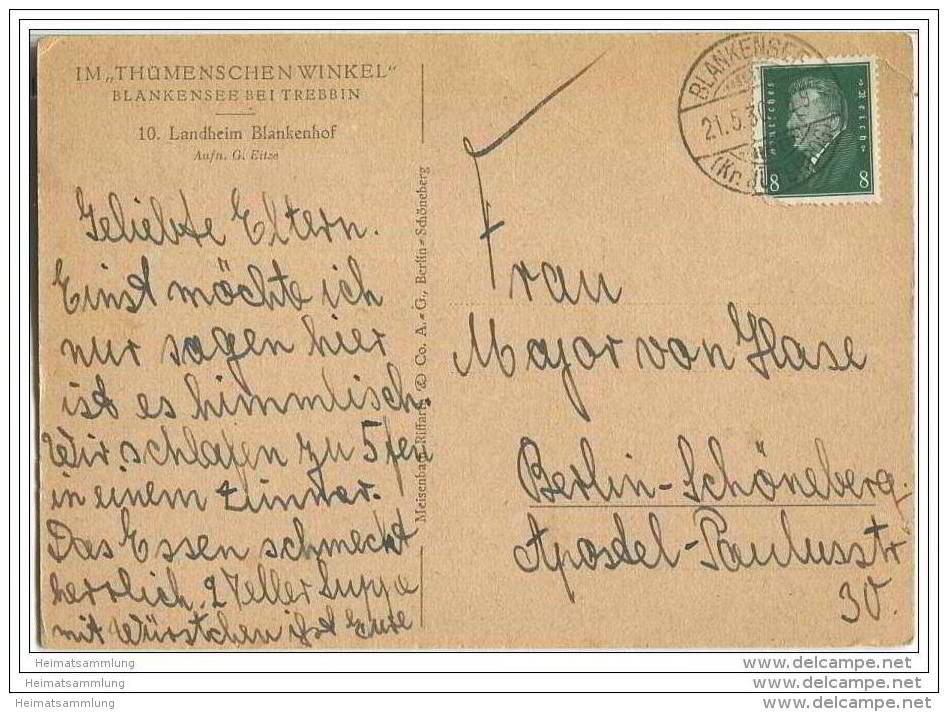 IM „THÜMENSCHEN WINKEL"
BLANKENSEE BEI TREBBIN
10. Landheim Blankenhof
Aufn. G. Eitze
Geliebte Eltern.
Einst möchte ich
nur sagen hier
ist es himmlisch.
Wir schlafen zu 5 fen
in einem Zimmer.
Das Essen schmeckt
herrlich. 2 Teller Suppe
mit Würstchen ißt Eure
Meisenbach Riffarth & Co. A.-G., Berlin-Schöneberg
BLANKENSEE
21.5.30
(Kr. JÜ
Deutsches Reich
8 8
Frau
Major von Hase
Berlin-Schöneberg.
Apostel-Paulusstr
30.
Heimatsammlung
Heimatsammlung
Heimatsammlung
www.delcampe.net
www.delcampe.net
www.delcampe.net